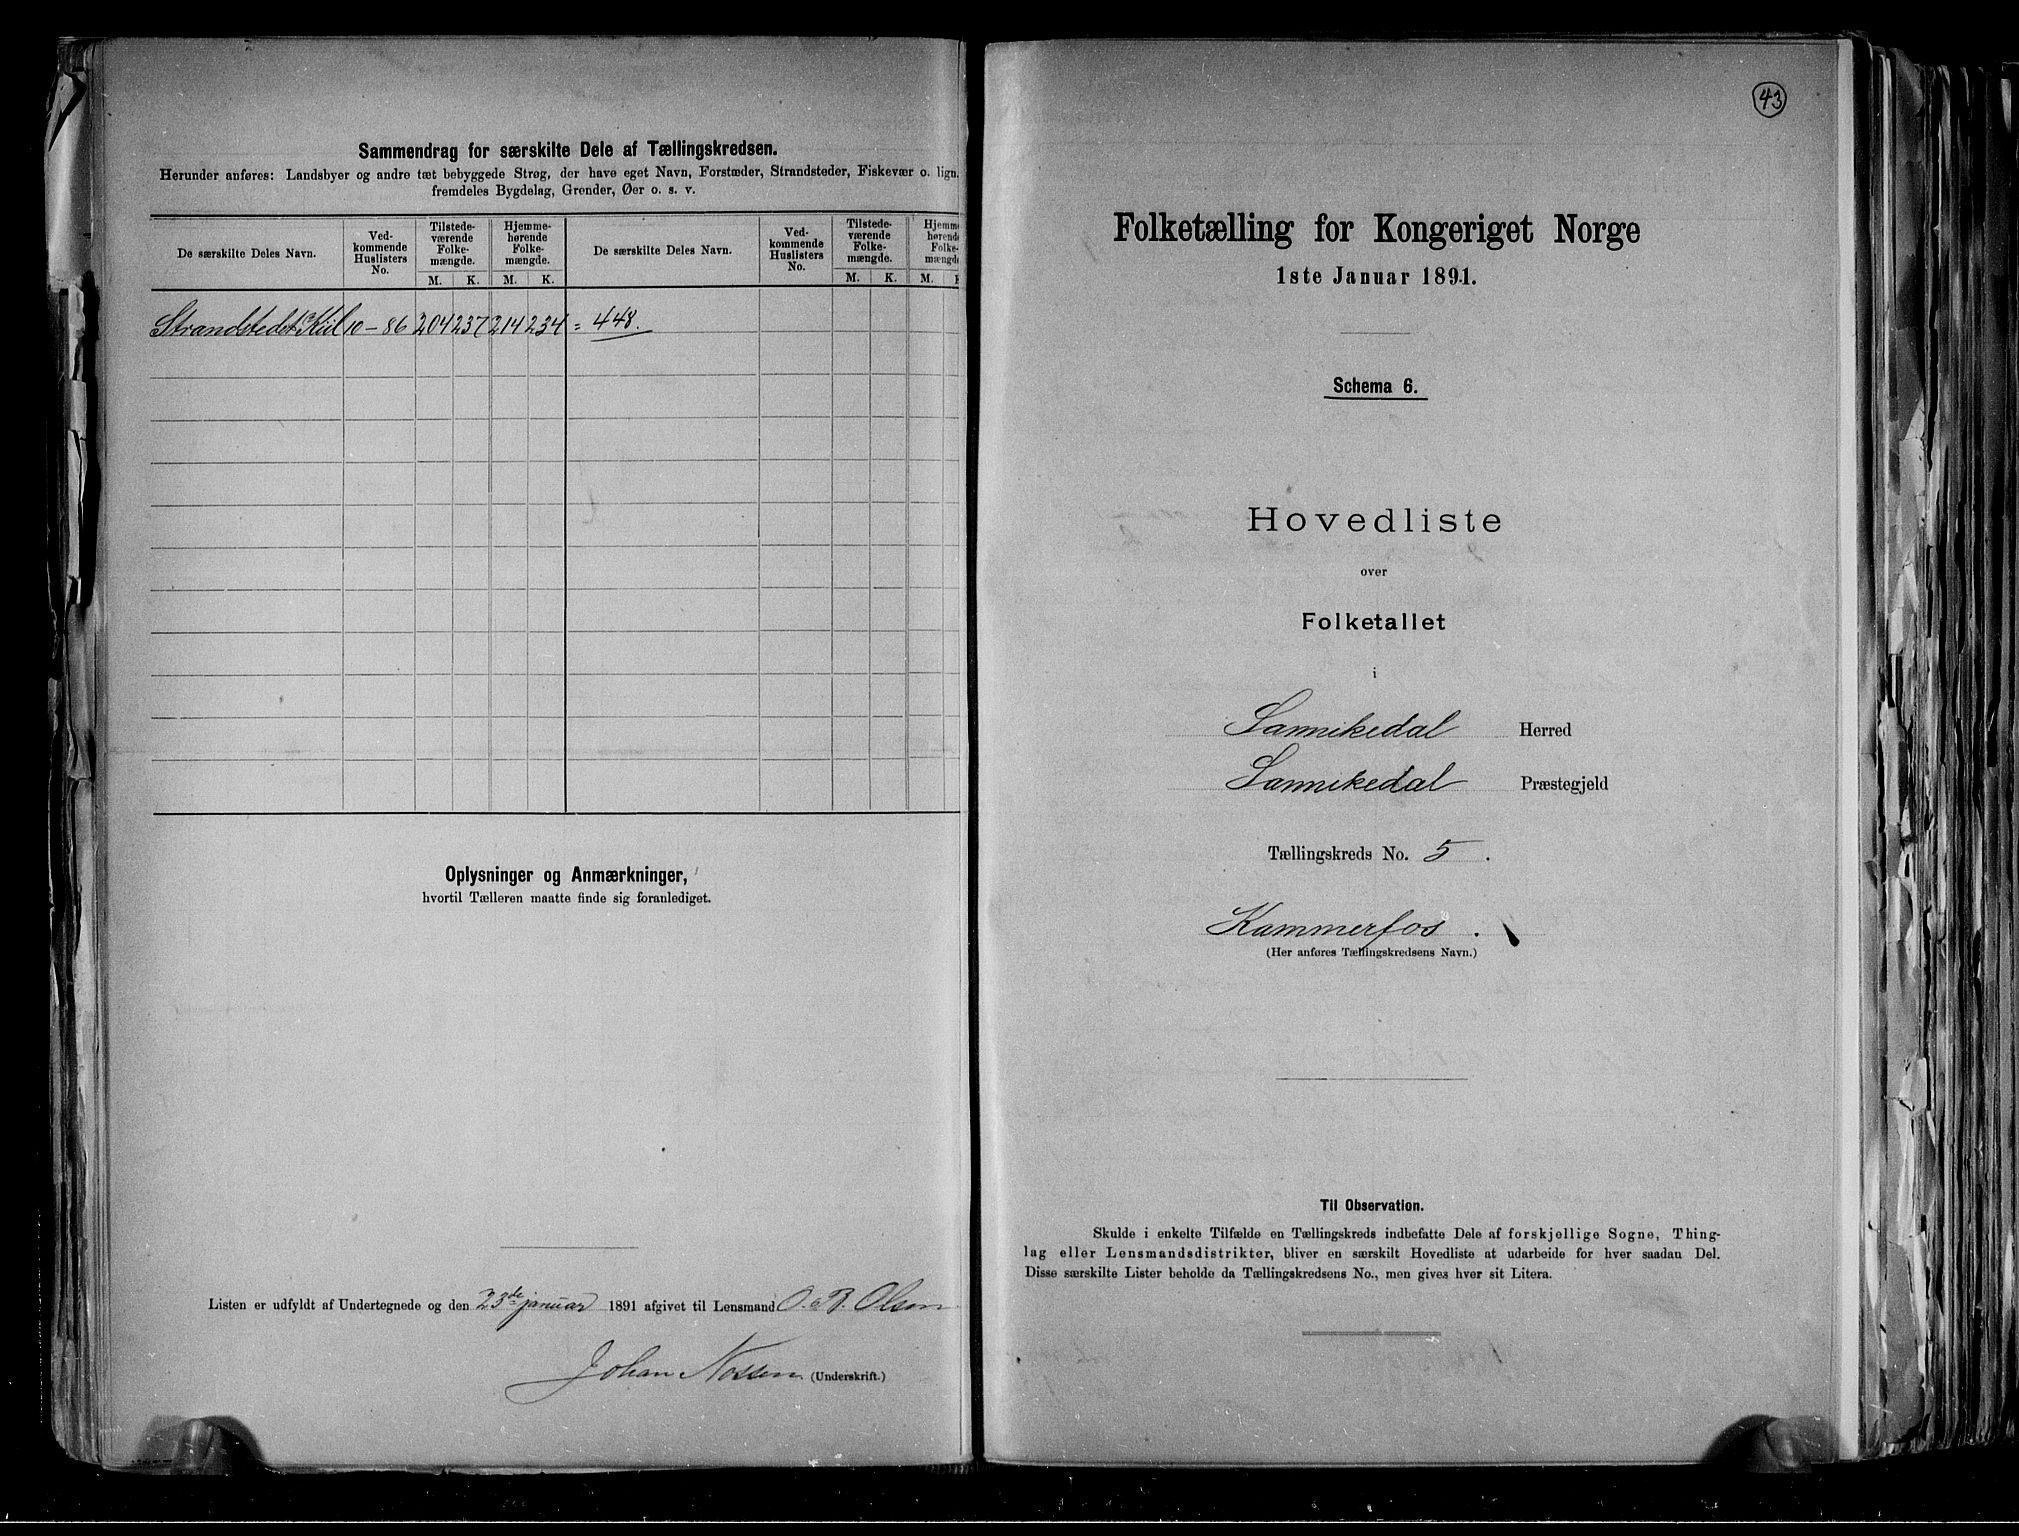 Sammendrag for særskilte Dele af Tællingskredsen.
Herunder anføres: Landsbyer og andre tæt bebyggede Strøg, der have eget Navn, Forstæder, Strandsteder, Fiskevær o. lign.
fremdeles Bygdelag, Grender, Øer o. s. v.
De særskilte Deles Navn.
Ved-
kommende
Huslisters
No.
Tilstede-
værende
Folke-
mængde.
M. K.
Hjemme-
hørende
Folke-
mængde.
M. K.
De særskilte Deles Navn.
Ved-
kommende
Huslisters
No.
Tilstede-
værende
Folke-
mængde.
M. K.
Hjemme
hørende
Folke-
mængde
M. K
Strandstedet Kiil 10-86 204 237 214 234 = 448.
Oplysninger og Anmærkninger,
hvortil Tælleren maatte finde sig foranlediget.
Listen er udfyldt af Undertegnede og den 23de januar 1891 afgivet til Lensmand O. B. Olsen
Johan Nossen (Underskrift.)
43
Folketælling for Kongeriget Norge
1ste Januar 1891.
Schema 6.
Hovedliste
over
Folketallet
i
Sannikedal Herred
Sannikedal Præstegjeld
Tællingskreds No. 5.
Kammerfos.
(Her anføres Tællingskredsens Navn.)
Til Observation.
Skulde i enkelte Tilfælde en Tællingskreds indbefatte Dele af forskjellige Sogne, Thing-
lag eller Lensmandsdistrikter, bliver en særskilt Hovedliste at udarbeide for hver saadan Del.
Disse særskilte Lister beholde da Tællingskredsens No., men gives hver sit Litera.